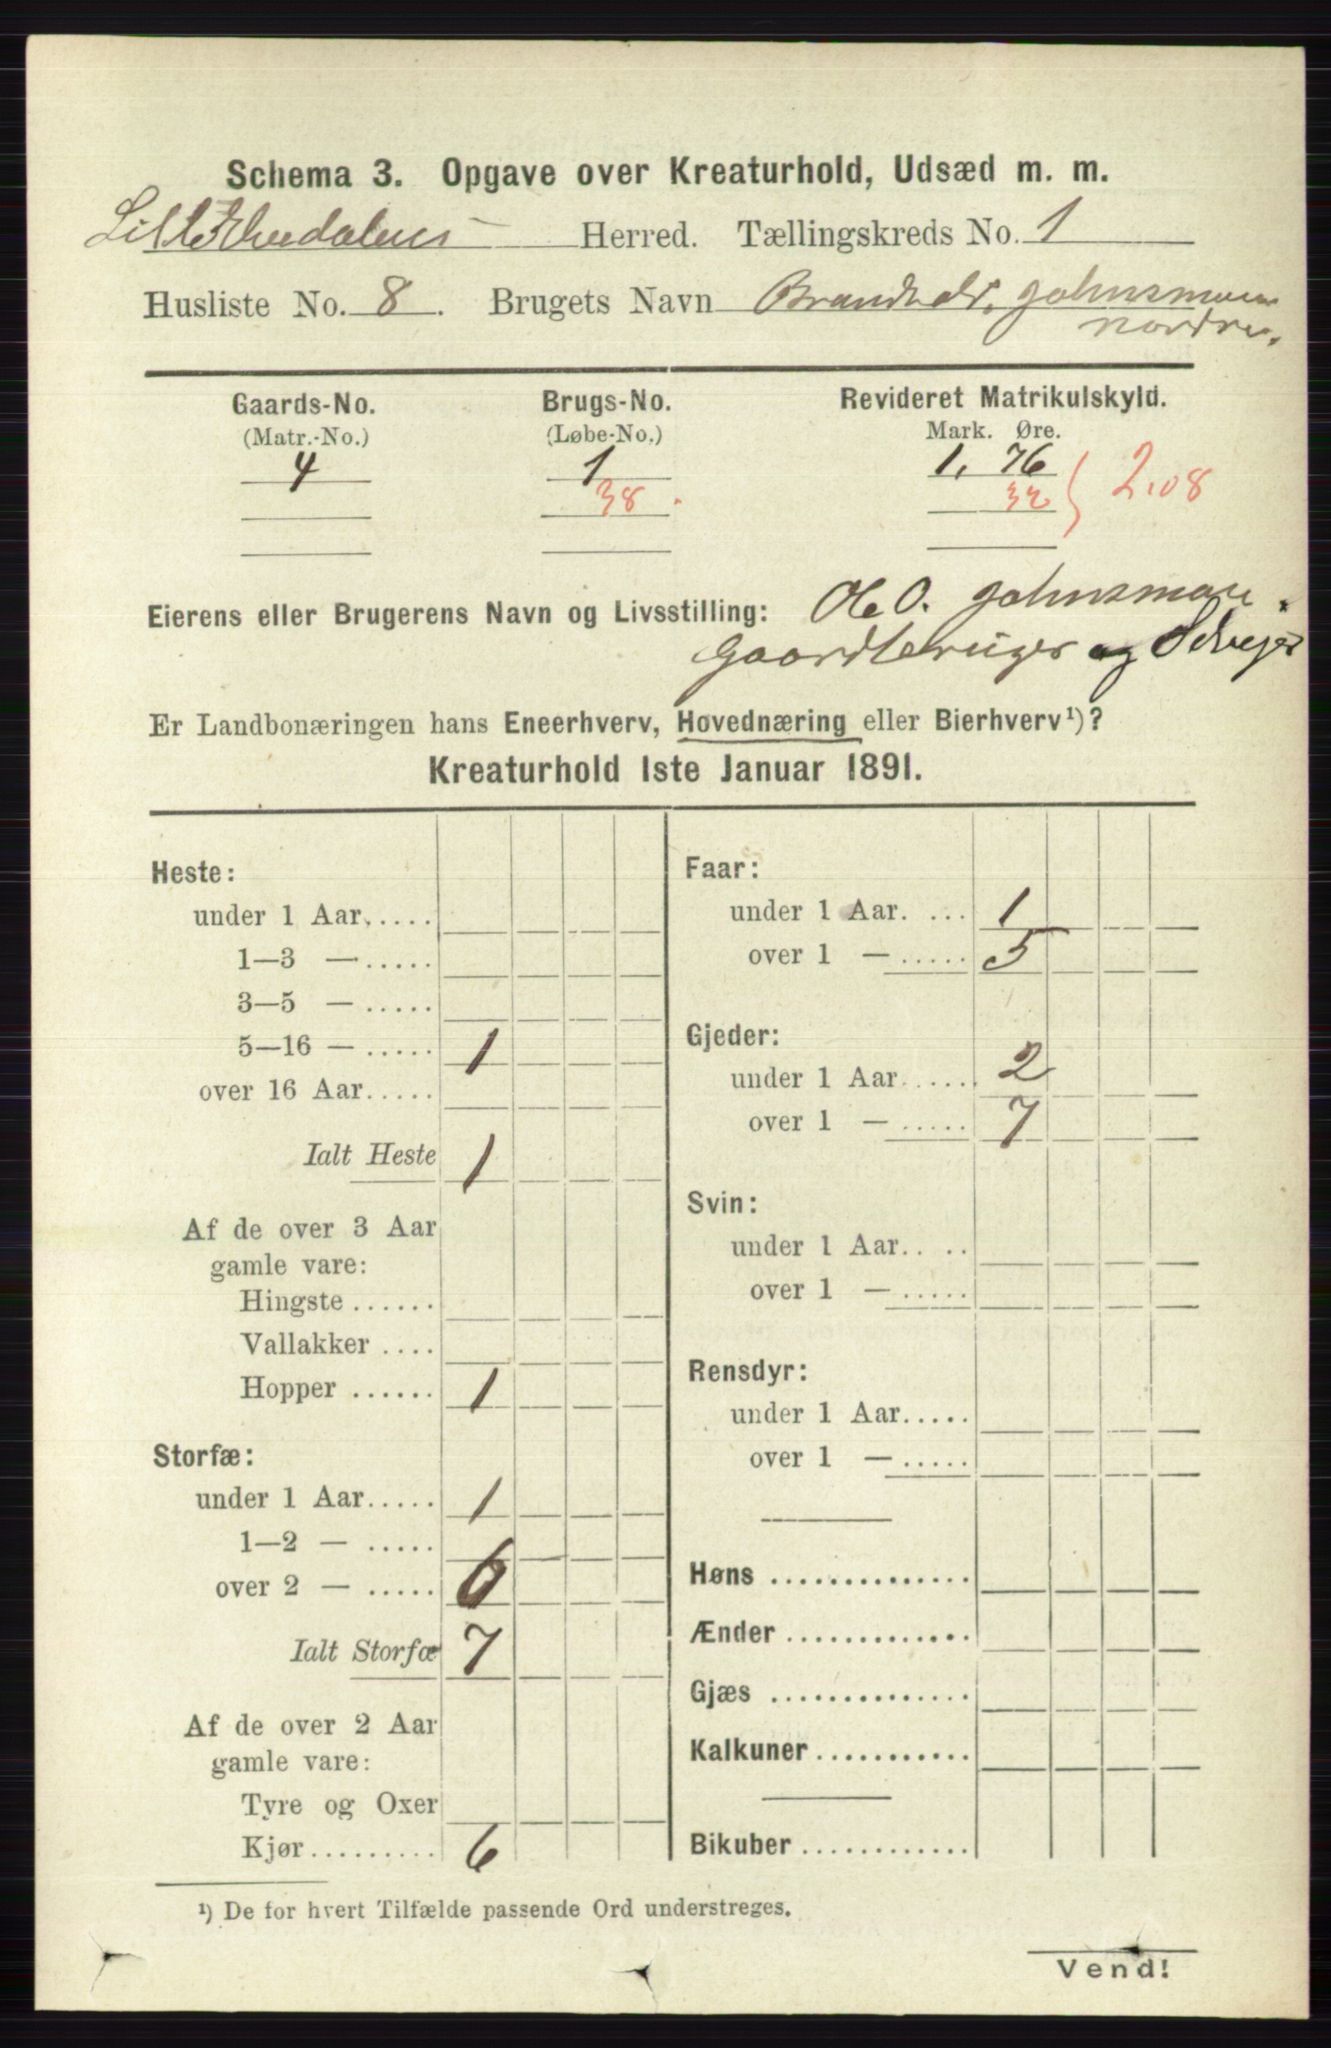 Schema 3. Opgave over Kreaturhold, Udsæd m. m.
Lille Elvedalens Herred. Tællingskreds No. 1
Husliste No. 8. Brugets Navn Johnsmoen
nordre.
Gaards-No. Brugs-No. Revideret Matrikulskyld.
(Matr.-No.) (Løbe-No.) Mark. Øre.
4 1 1, 76
38. 32 } 2,08
Eierens eller Brugerens Navn og Livsstilling: Ole O. Johnsmoen.
Gaardbruger og Selveier
Er Landbonæringen hans Eneerhverv, Hovednæring eller Bierhverv¹)?
Kreaturhold 1ste Januar 1891.
Heste:
under 1 Aar.....
1—3 — .....
3—5 — .....
5—16 — ..... 1
over 16 Aar.....
Ialt Heste 1
Af de over 3 Aar
gamle vare:
Hingste ......
Vallakker ....
Hopper ...... 1
Storfæ:
under 1 Aar..... 1
1—2 — .....
over 2 — ..... 6
Ialt Storfæ 7
Af de over 2 Aar
gamle vare:
Tyre og Oxer
Kjør ......... 6
Faar:
under 1 Aar. ... 1
over 1 — ..... 5
Gjeder:
under 1 Aar...... 2
over 1 — ..... 7
Svin:
under 1 Aar.. ..
over 1 — .....
Rensdyr:
under 1 Aar.....
over 1 — .....
Høns ..............
Ænder .............
Gjæs ..............
Kalkuner ...........
Bikuber ............
¹) De for hvert Tilfælde passende Ord understreges.
Vend!